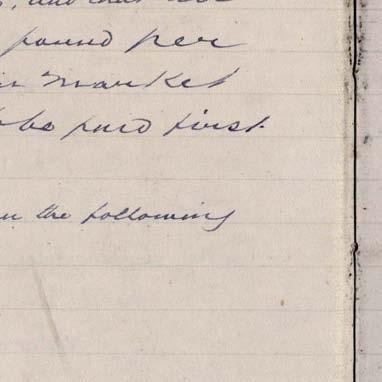 and that
pound per
market
be paid first
the following